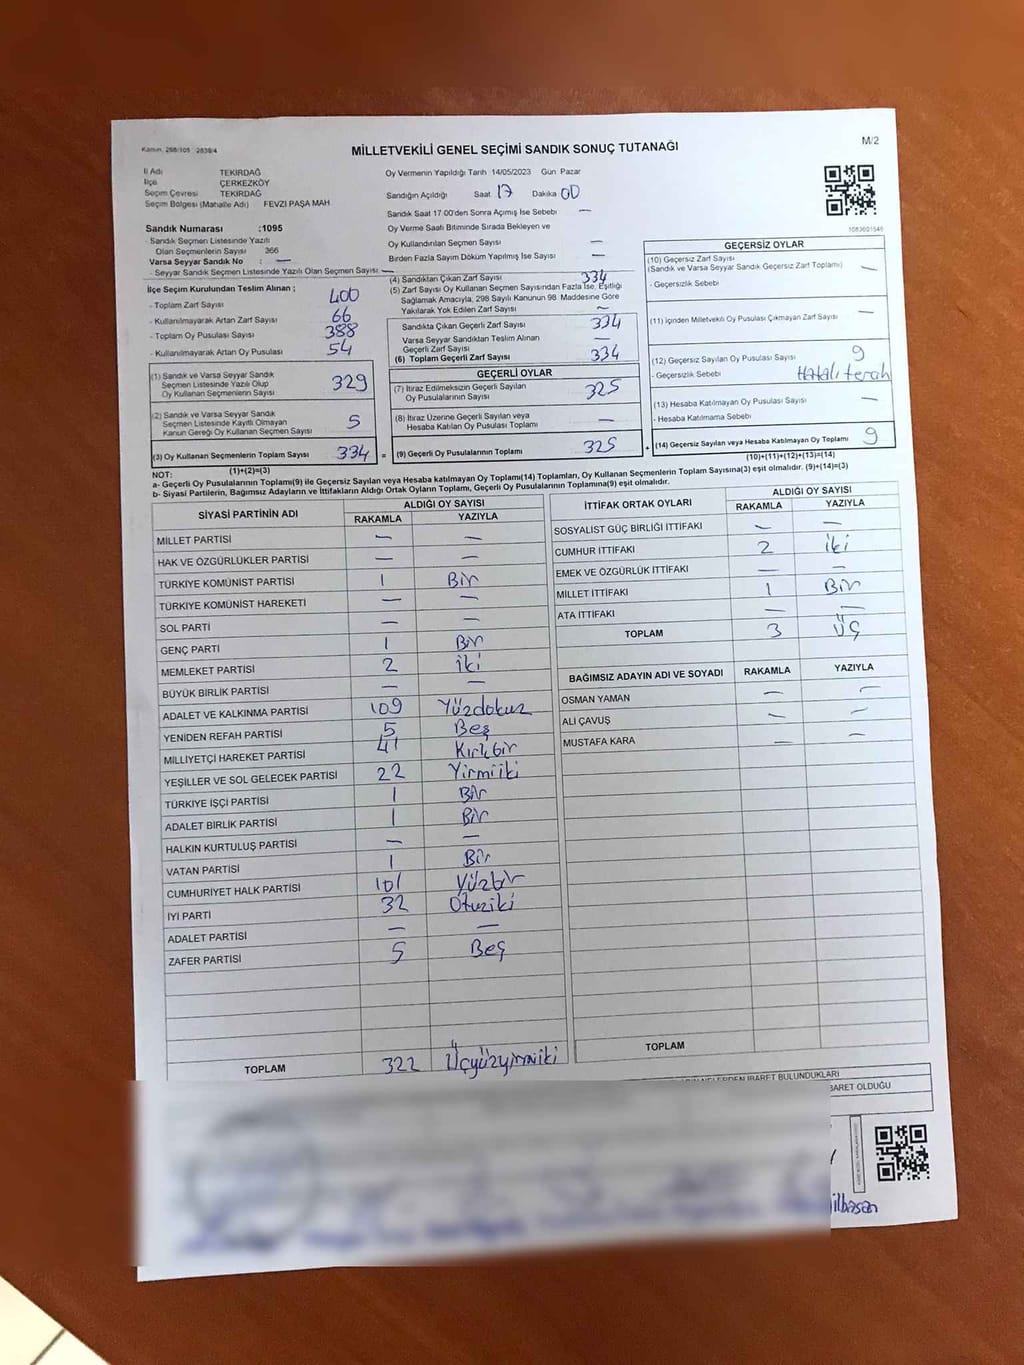 Kanun. 298/105 2839/4
MİLLETVEKİLİ GENEL SEÇİMİ SANDIK SONUÇ TUTANAĞI
M/2
İl Adı TEKİRDAĞ
İlçe ÇERKEZKÖY
Seçim Çevresi TEKİRDAĞ
Seçim Bölgesi (Mahalle Adı) FEVZİ PAŞA MAH
Oy Vermenin Yapıldığı Tarih 14/05/2023 Gün Pazar
Sandığın Açıldığı Saat 17 Dakika 00
Sandık Saat 17.00'den Sonra Açımış İse Sebebi —
Oy Verme Saati Bitiminde Sırada Bekleyen ve
Oy Kullandırılan Seçmen Sayısı —
Birden Fazla Sayım Döküm Yapılmış İse Sayısı —
Sandık Numarası :1095
- Sandık Seçmen Listesinde Yazılı
Olan Seçmenlerin Sayısı 366
Varsa Seyyar Sandık No : —
- Seyyar Sandık Seçmen Listesinde Yazılı Olan Seçmen Sayısı —
İlçe Seçim Kurulundan Teslim Alınan ;
- Toplam Zarf Sayısı 400
- Kullanılmayarak Artan Zarf Sayısı 66
- Toplam Oy Pusulası Sayısı 388
- Kullanılmayarak Artan Oy Pusulası 54
(1) Sandık ve Varsa Seyyar Sandık
Seçmen Listesinde Yazılı Olup
Oy Kullanan Seçmenlerin Sayısı 329
(2) Sandık ve Varsa Seyyar Sandık
Seçmen Listesinde Kayıtlı Olmayan
Kanun Gereği Oy Kullanan Seçmen Sayısı 5
(3) Oy Kullanan Seçmenlerin Toplam Sayısı 334 =
(1)+(2)=(3)
(4) Sandıktan Çıkan Zarf Sayısı 334
(5) Zarf Sayısı Oy Kullanan Seçmen Sayısından Fazla İse, Eşitliği
Sağlamak Amacıyla, 298 Sayılı Kanunun 98. Maddesine Göre
Yakılarak Yok Edilen Zarf Sayısı —
Sandıkta Çıkan Geçerli Zarf Sayısı 334
Varsa Seyyar Sandıktan Teslim Alınan
Geçerli Zarf Sayısı —
(6) Toplam Geçerli Zarf Sayısı 334
GEÇERLİ OYLAR
(7) İtiraz Edilmeksizin Geçerli Sayılan
Oy Pusulalarının Sayısı 325
(8) İtiraz Üzerine Geçerli Sayılan veya
Hesaba Katılan Oy Pusulası Toplamı —
(9) Geçerli Oy Pusulalarının Toplamı 325 +
1083601546
GEÇERSİZ OYLAR
(10) Geçersiz Zarf Sayısı
(Sandık ve Varsa Seyyar Sandık Geçersiz Zarf Toplamı) —
- Geçersizlik Sebebi
(11) İçinden Milletvekili Oy Pusulası Çıkmayan Zarf Sayısı —
(12) Geçersiz Sayılan Oy Pusulası Sayısı 9
- Geçersizlik Sebebi Hatalı tercih
(13) Hesaba Katılmayan Oy Pusulası Sayısı —
- Hesaba Katılmama Sebebi
(14) Geçersiz Sayılan veya Hesaba Katılmayan Oy Toplamı 9
(10)+(11)+(12)+(13)=(14)
NOT:
a- Geçerli Oy Pusulalarının Toplamı(9) ile Geçersiz Sayılan veya Hesaba katılmayan Oy Toplamı(14) Toplamları, Oy Kullanan Seçmenlerin Toplam Sayısına(3) eşit olmalıdır. (9)+(14)=(3)
b- Siyasi Partilerin, Bağımsız Adayların ve İttifakların Aldığı Ortak Oyların Toplamı, Geçerli Oy Pusulalarının Toplamına(9) eşit olmalıdır.
SİYASİ PARTİNİN ADI ALDIĞI OY SAYISI
RAKAMLA YAZIYLA
MİLLET PARTİSİ — —
HAK VE ÖZGÜRLÜKLER PARTİSİ — —
TÜRKİYE KOMÜNİST PARTİSİ 1 Bir
TÜRKİYE KOMÜNİST HAREKETİ — —
SOL PARTİ — —
GENÇ PARTİ 1 Bir
MEMLEKET PARTİSİ 2 iki
BÜYÜK BİRLİK PARTİSİ — —
ADALET VE KALKINMA PARTİSİ 109 Yüzdokuz
YENİDEN REFAH PARTİSİ 5 Beş
MİLLİYETÇİ HAREKET PARTİSİ 41 Kırkbir
YEŞİLLER VE SOL GELECEK PARTİSİ 22 Yirmiiki
TÜRKİYE İŞÇİ PARTİSİ 1 Bir
ADALET BİRLİK PARTİSİ 1 Bir
HALKIN KURTULUŞ PARTİSİ — —
VATAN PARTİSİ 1 Bir
CUMHURİYET HALK PARTİSİ 101 Yüzbir
İYİ PARTİ 32 Otuziki
ADALET PARTİSİ — —
ZAFER PARTİSİ 5 Beş
TOPLAM 322 Üçyüzyirmiiki
İTTİFAK ORTAK OYLARI ALDIĞI OY SAYISI
RAKAMLA YAZIYLA
SOSYALİST GÜÇ BİRLİĞİ İTTİFAKI — —
CUMHUR İTTİFAKI 2 iki
EMEK VE ÖZGÜRLÜK İTTİFAKI — —
MİLLET İTTİFAKI 1 Bir
ATA İTTİFAKI — —
TOPLAM 3 Üç
BAĞIMSIZ ADAYIN ADI VE SOYADI RAKAMLA YAZIYLA
OSMAN YAMAN — —
ALİ ÇAVUŞ — —
MUSTAFA KARA — —
TOPLAM
NELERDEN İBARET BULUNDUKLARI
BARET OLDUĞU
ilbasan